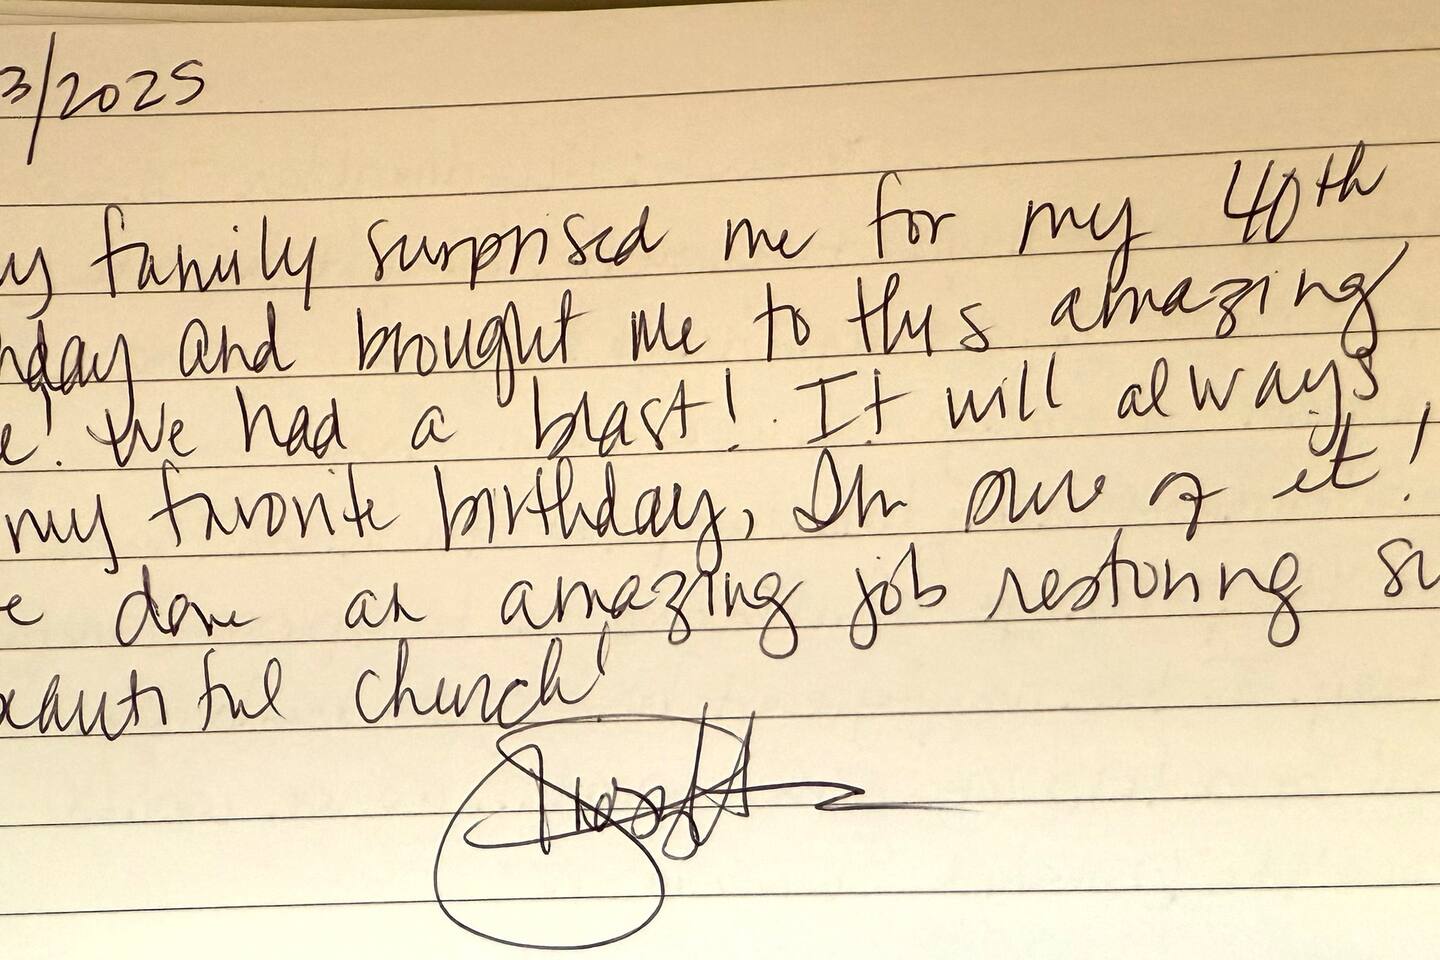 3/2025
y family surprised me for my 40th
hday and brought me to this amazing
e! We had a blast! It will always
my favorite birthday, I'm sure of it!
e done an amazing job restoring su
beautiful church!